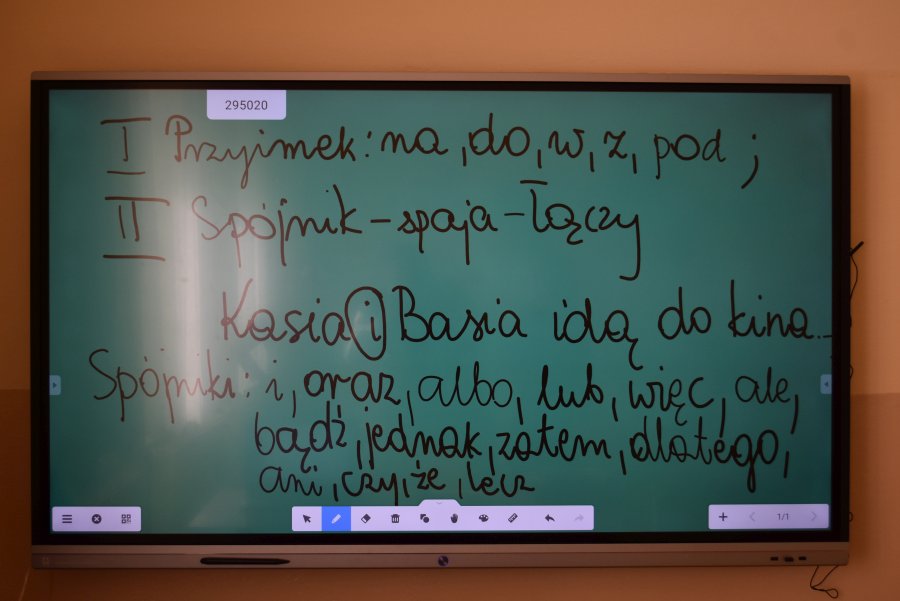 295020
I Przyimek: na, do, w, z, pod ;
II Spójnik - spaja - łączy
Kasia i Basia idą do kina.
Spójniki: i, oraz, albo, lub, więc, ale,
bądź, jednak, zatem, dlatego,
ani, czy, że, lecz
1/1